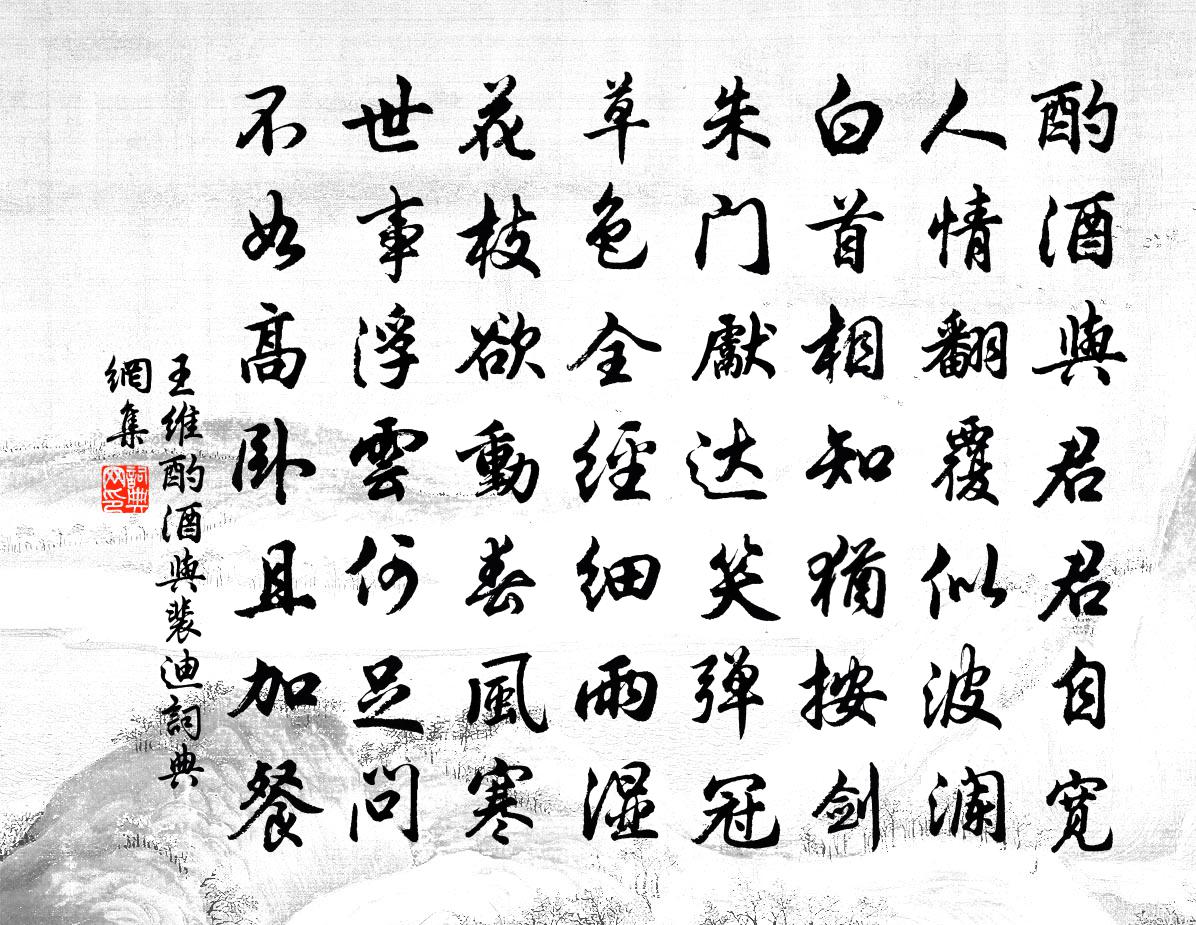 酌酒與君君自寬
人情翻覆似波瀾
白首相知猶按剑
朱门獻达笑弹冠
草色全經細雨湿
花枝欲動春風寒
世事浮雲何足问
不如高卧且加餐
王維酌酒與裴迪詞典
網集
詞典
网印